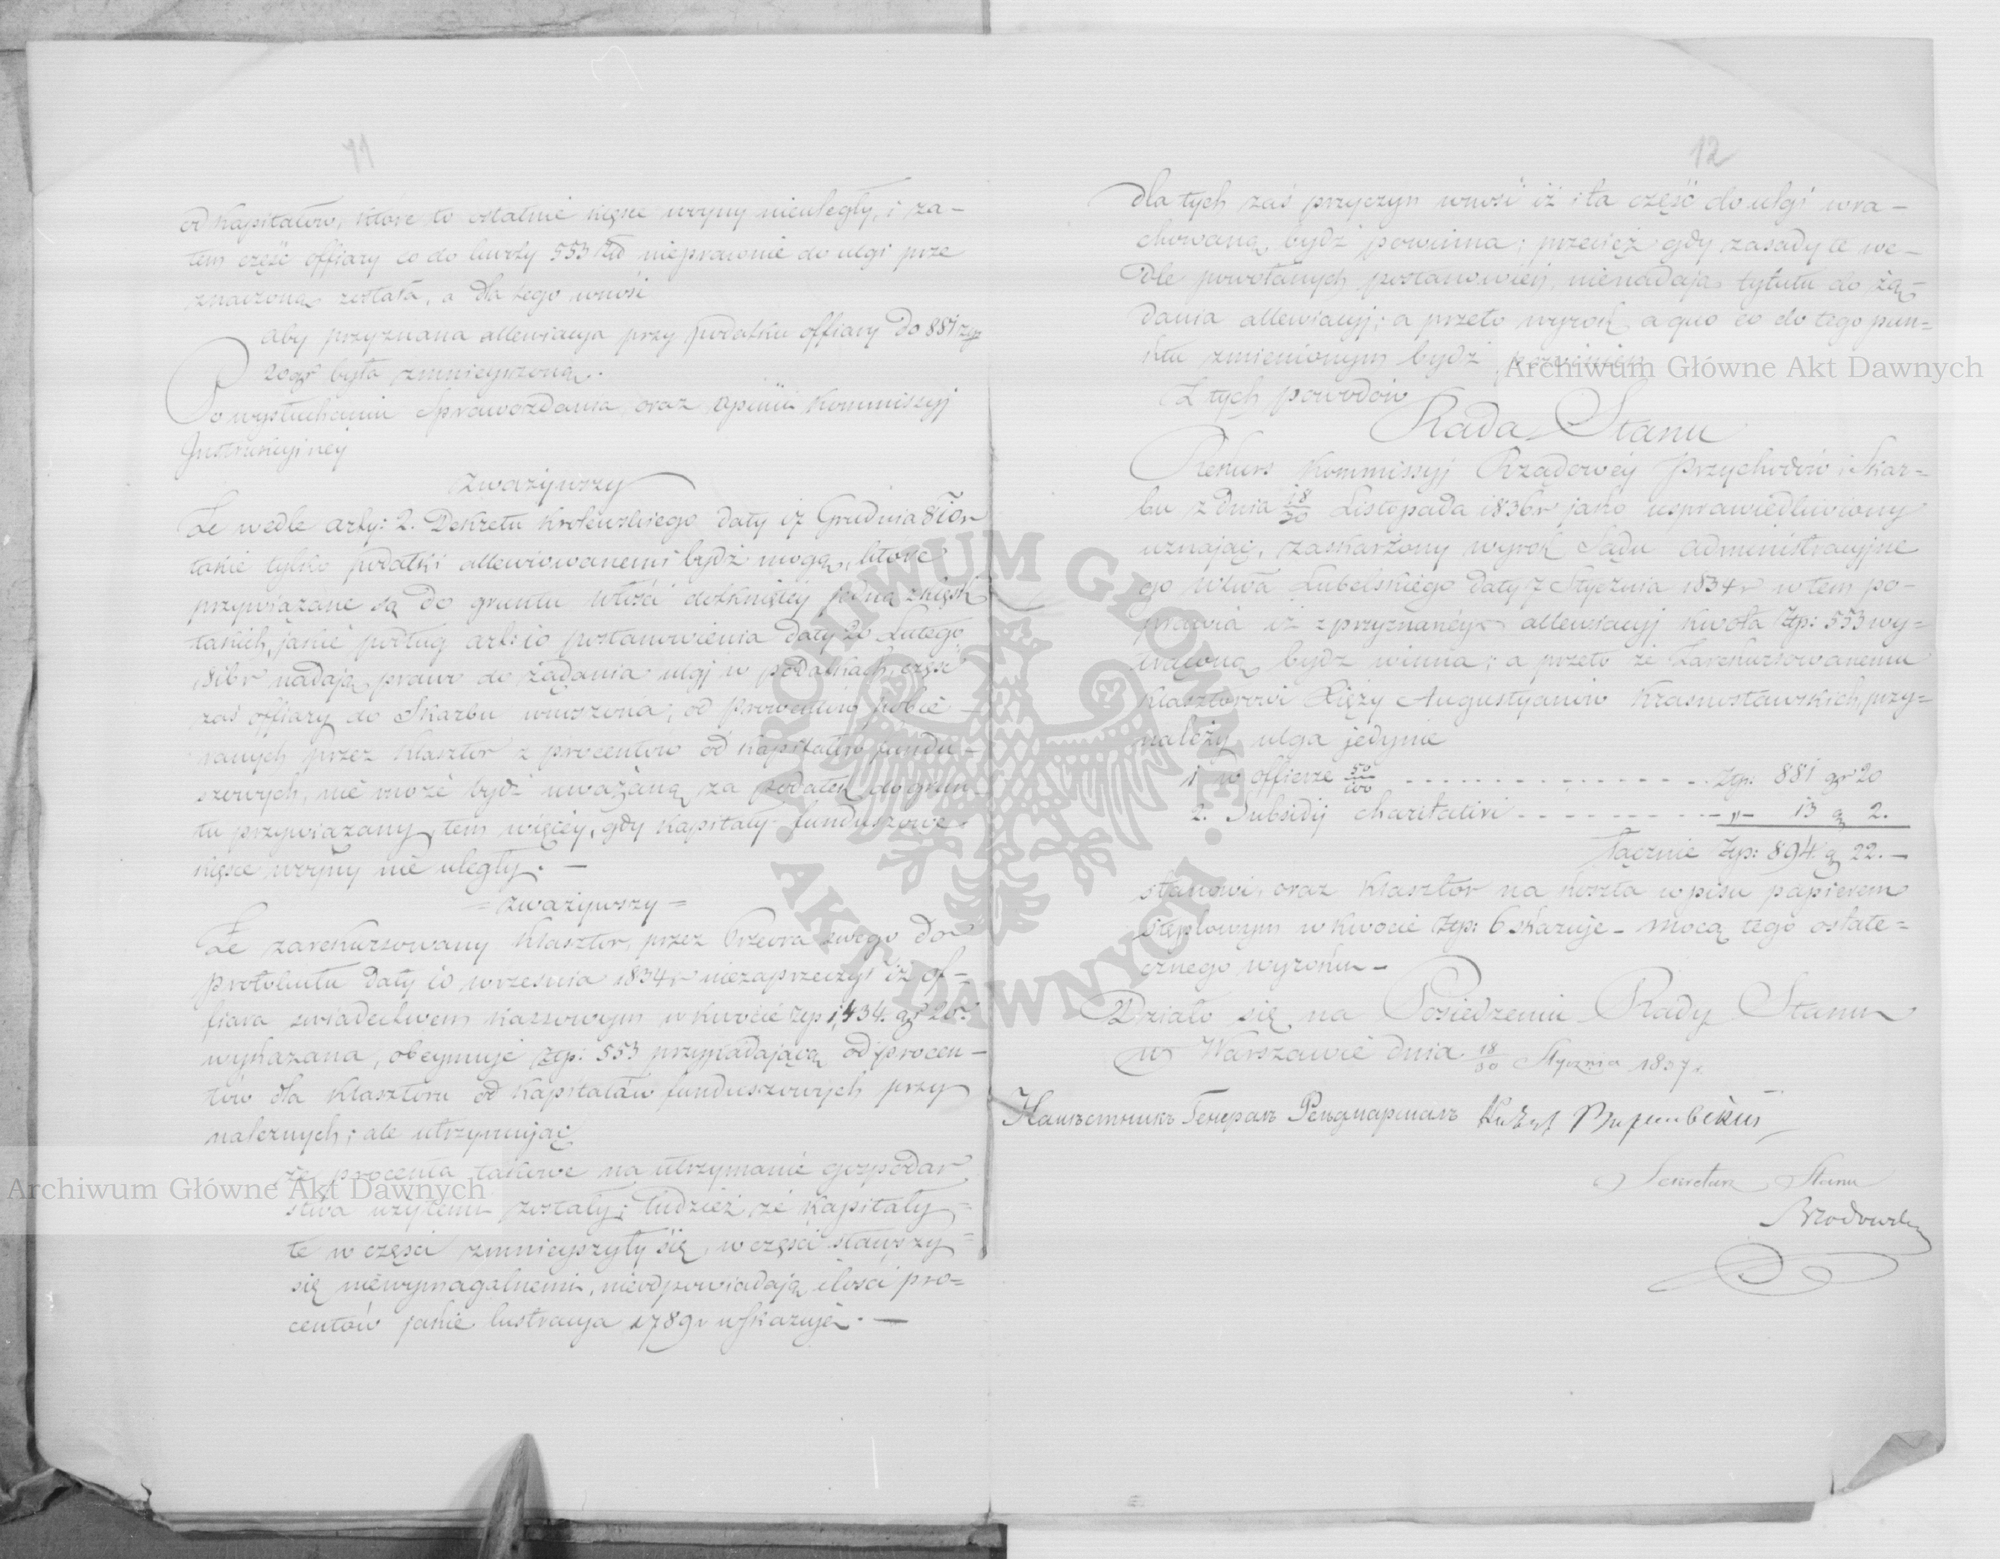 11
od Kapitałów, które to ostatnie klęsce wojny nieuległy, i za-
tem część offiary co do kwoty 553 Złd nieprawnie do ulgi prze
znaczoną została, a dla tego wnosi
aby przyznana allewiacya przy podatku offiary do 881 zp
20 gr była zmnieyszoną.
Po wysłuchaniu Sprawozdania, oraz Opinii Kommissyj
Instrukcyjney
zważywszy
Że wedle arty: 2. Dekretu Królewskiego daty 17 Grudnia 810r
takie tylko podatki allewiowanemi bydź mogą, które
przywiązane są do gruntu włości dotkniętéy jedną z klęsk
takich, jakie podług art: 10 postanowienia daty 20 Lutego
1816r nadają prawo do żądania ulgi w podatkach, część
zaś offiary do Skarbu wnoszona, od Prowentów pobie-
ranych przez Klasztor z procentów od kapitałów fundu-
szowych, nie może bydź uważaną za podatek do grun
tu przywiązany, tem więcéy, gdy Kapitały funduszowe
klęsce wojny nie uległy. —
= zważywszy =
Że zarekursowany Klasztor, przez Przeora swego do
protokułu daty 10 września 1834r niezaprzeczył iż of-
fiara świadectwem kassowym w kwocie Złp 1,434. gr 20.
wykazana, obeymuje złp: 553 przypadającą od procen-
tów dla Klasztoru od Kapitałów funduszowych przy
należnych; ale utrzymując
że procenta takowe na utrzymanie gospodar
stwa użytemi zostały; tudzież, że Kapitały
te w części zmnieyszyły się, w części stawszy
się niewymagalnemi, nieodpowiadają ilości pro-
centów jakie lustracya 1789r wskazuje. —
12
dla tych zaś przyczyn wnosi iż i ta część do ulgi wra-
chowaną bydź powinna; przecież gdy zasady te we-
dle powołanych postanowień, nienadają tytułu do żą-
dania allewiacyj; a przeto wyrok a quo co do tego pun-
ktu zmienionym bydź powinien
Z tych powodów
Rada Stanu
Rekurs Kommissyj Rządowéy Przychodów i Skar-
bu z dnia 18/30 Listopada 1836r jako usprawiedliwiony
uznając, zaskarżony wyrok Sądu Administracyjne
go Wdztwa Lubelskiego daty 7 Stycznia 1834r w tem po-
prawia iż z przyznanéy allewiacyj kwota Złp: 553 wy-
trąconą bydź winna; a przeto że Zarekursowanemu
Klasztorowi Xięży Augustyanów Krasnostawskich, przy-
należy ulga jedynie
1 w offierze 50/100 - - - - - - - - Złp: 881 gr 20
2. Subsidij charitativi - - - - - - - „ - 13 g 2.
łącznie Złp: 894 g 22. —
stanowi, oraz Klasztor na koszta wpisu papierem
stęplowym w kwocie Złp: 6 skazuje — mocą tego ostate-
cznego wyroku —
Działo się na Posiedzeniu Rady Stanu
w Warszawie dnia 18/30 Stycznia 1837r.
Намѣстникъ Генералъ Фельдмаршалъ Князь Варшавскій
Sekretarz Stanu
Brzodowski
Archiwum Główne Akt Dawnych
Archiwum Główne Akt Dawnych
ARCHIWUM GŁÓWNE
AKT DAWNYCH